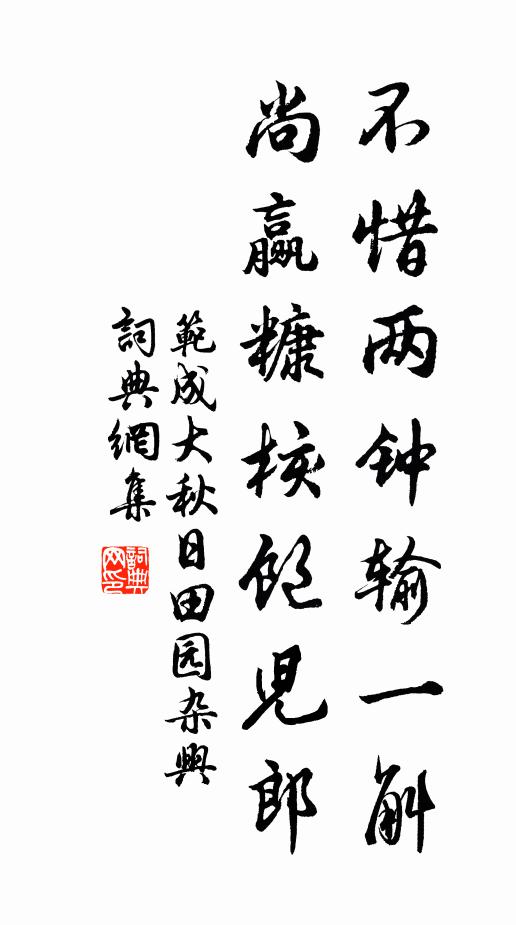 不惜两钟输一斛
尚赢糠核饱兒郎
範成大秋日田园杂興
詞典網集
詞典
网印